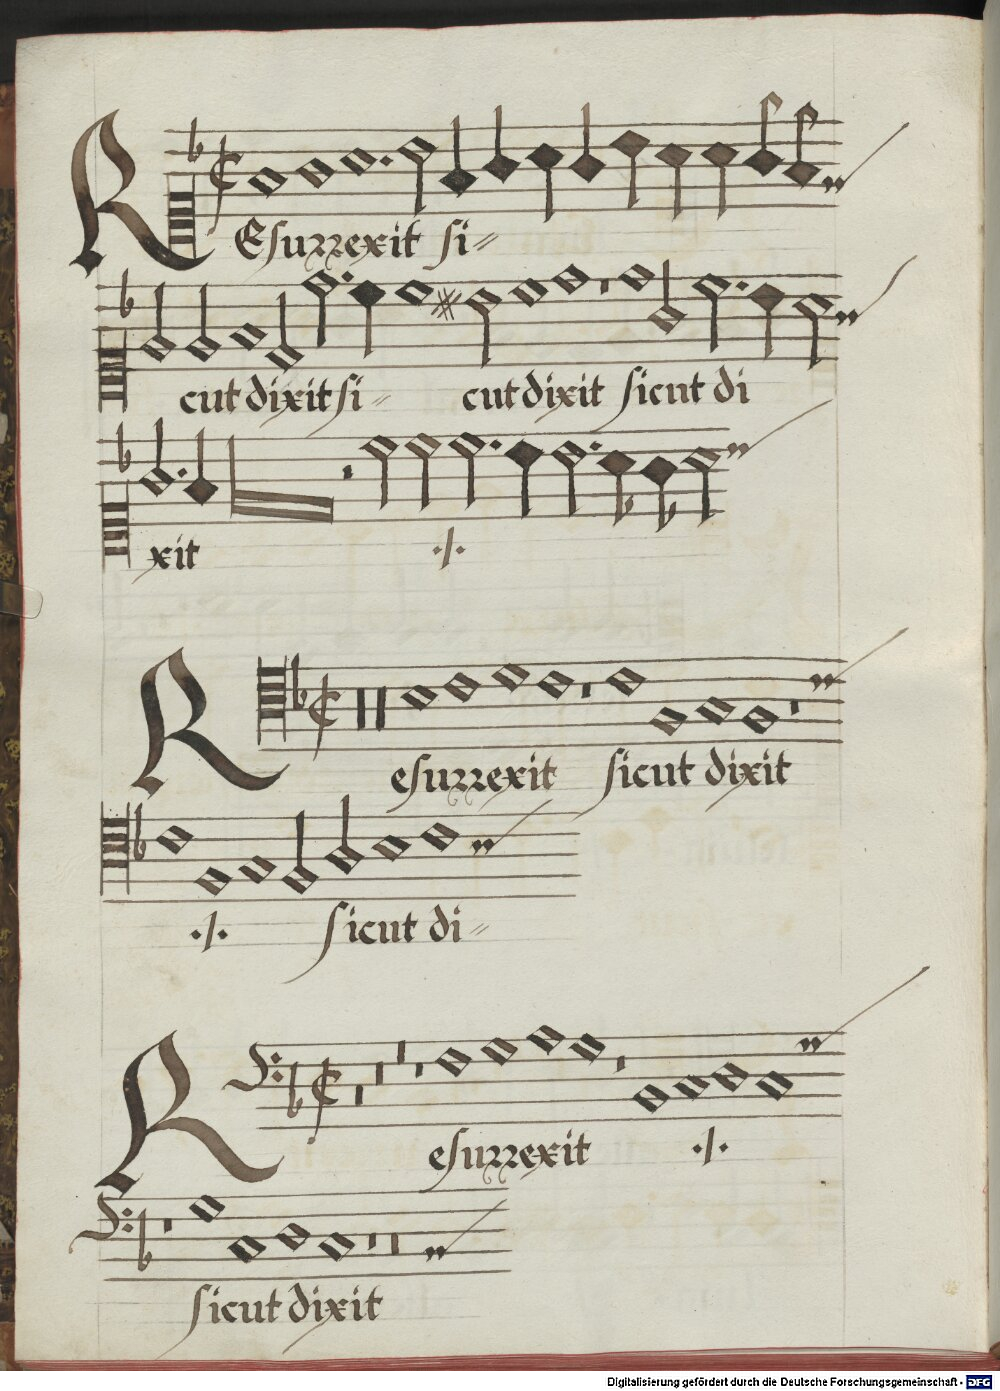 REsurrexit si-
cut dixit si- cut dixit sicut di
xit ./.
Resurrexit sicut dixit
./. sicut di-
Resurrexit ./.
sicut dixit
Digitalisierung gefördert durch die Deutsche Forschungsgemeinschaft - DFG